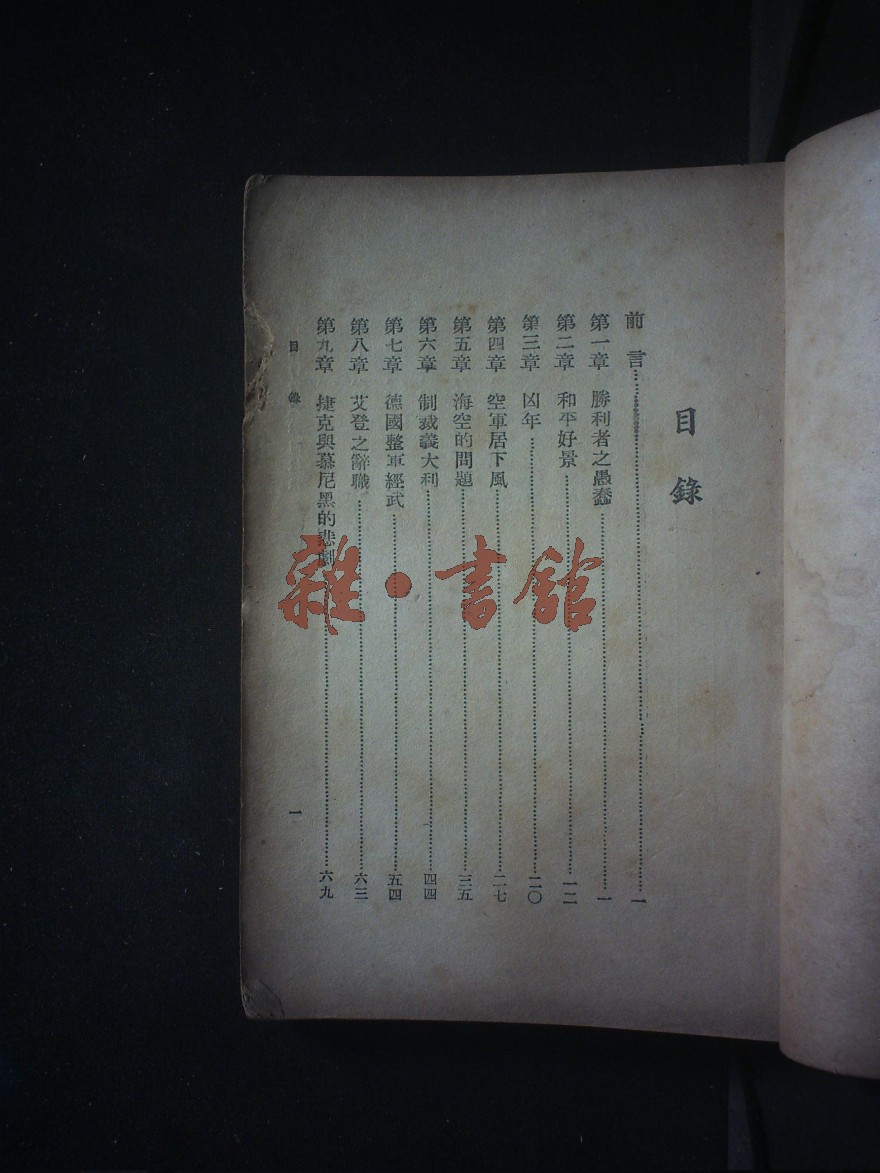 目錄
前言……一
第一章 勝利者之愚蠢……一
第二章 和平好景……一二
第三章 凶年……二〇
第四章 空軍居下風……二七
第五章 海空的問題……三五
第六章 制裁義大利……四四
第七章 德國整軍經武……五四
第八章 艾登之辭職……六三
第九章 捷克與慕尼黑的悲劇……六九
目錄
一
雜·書館